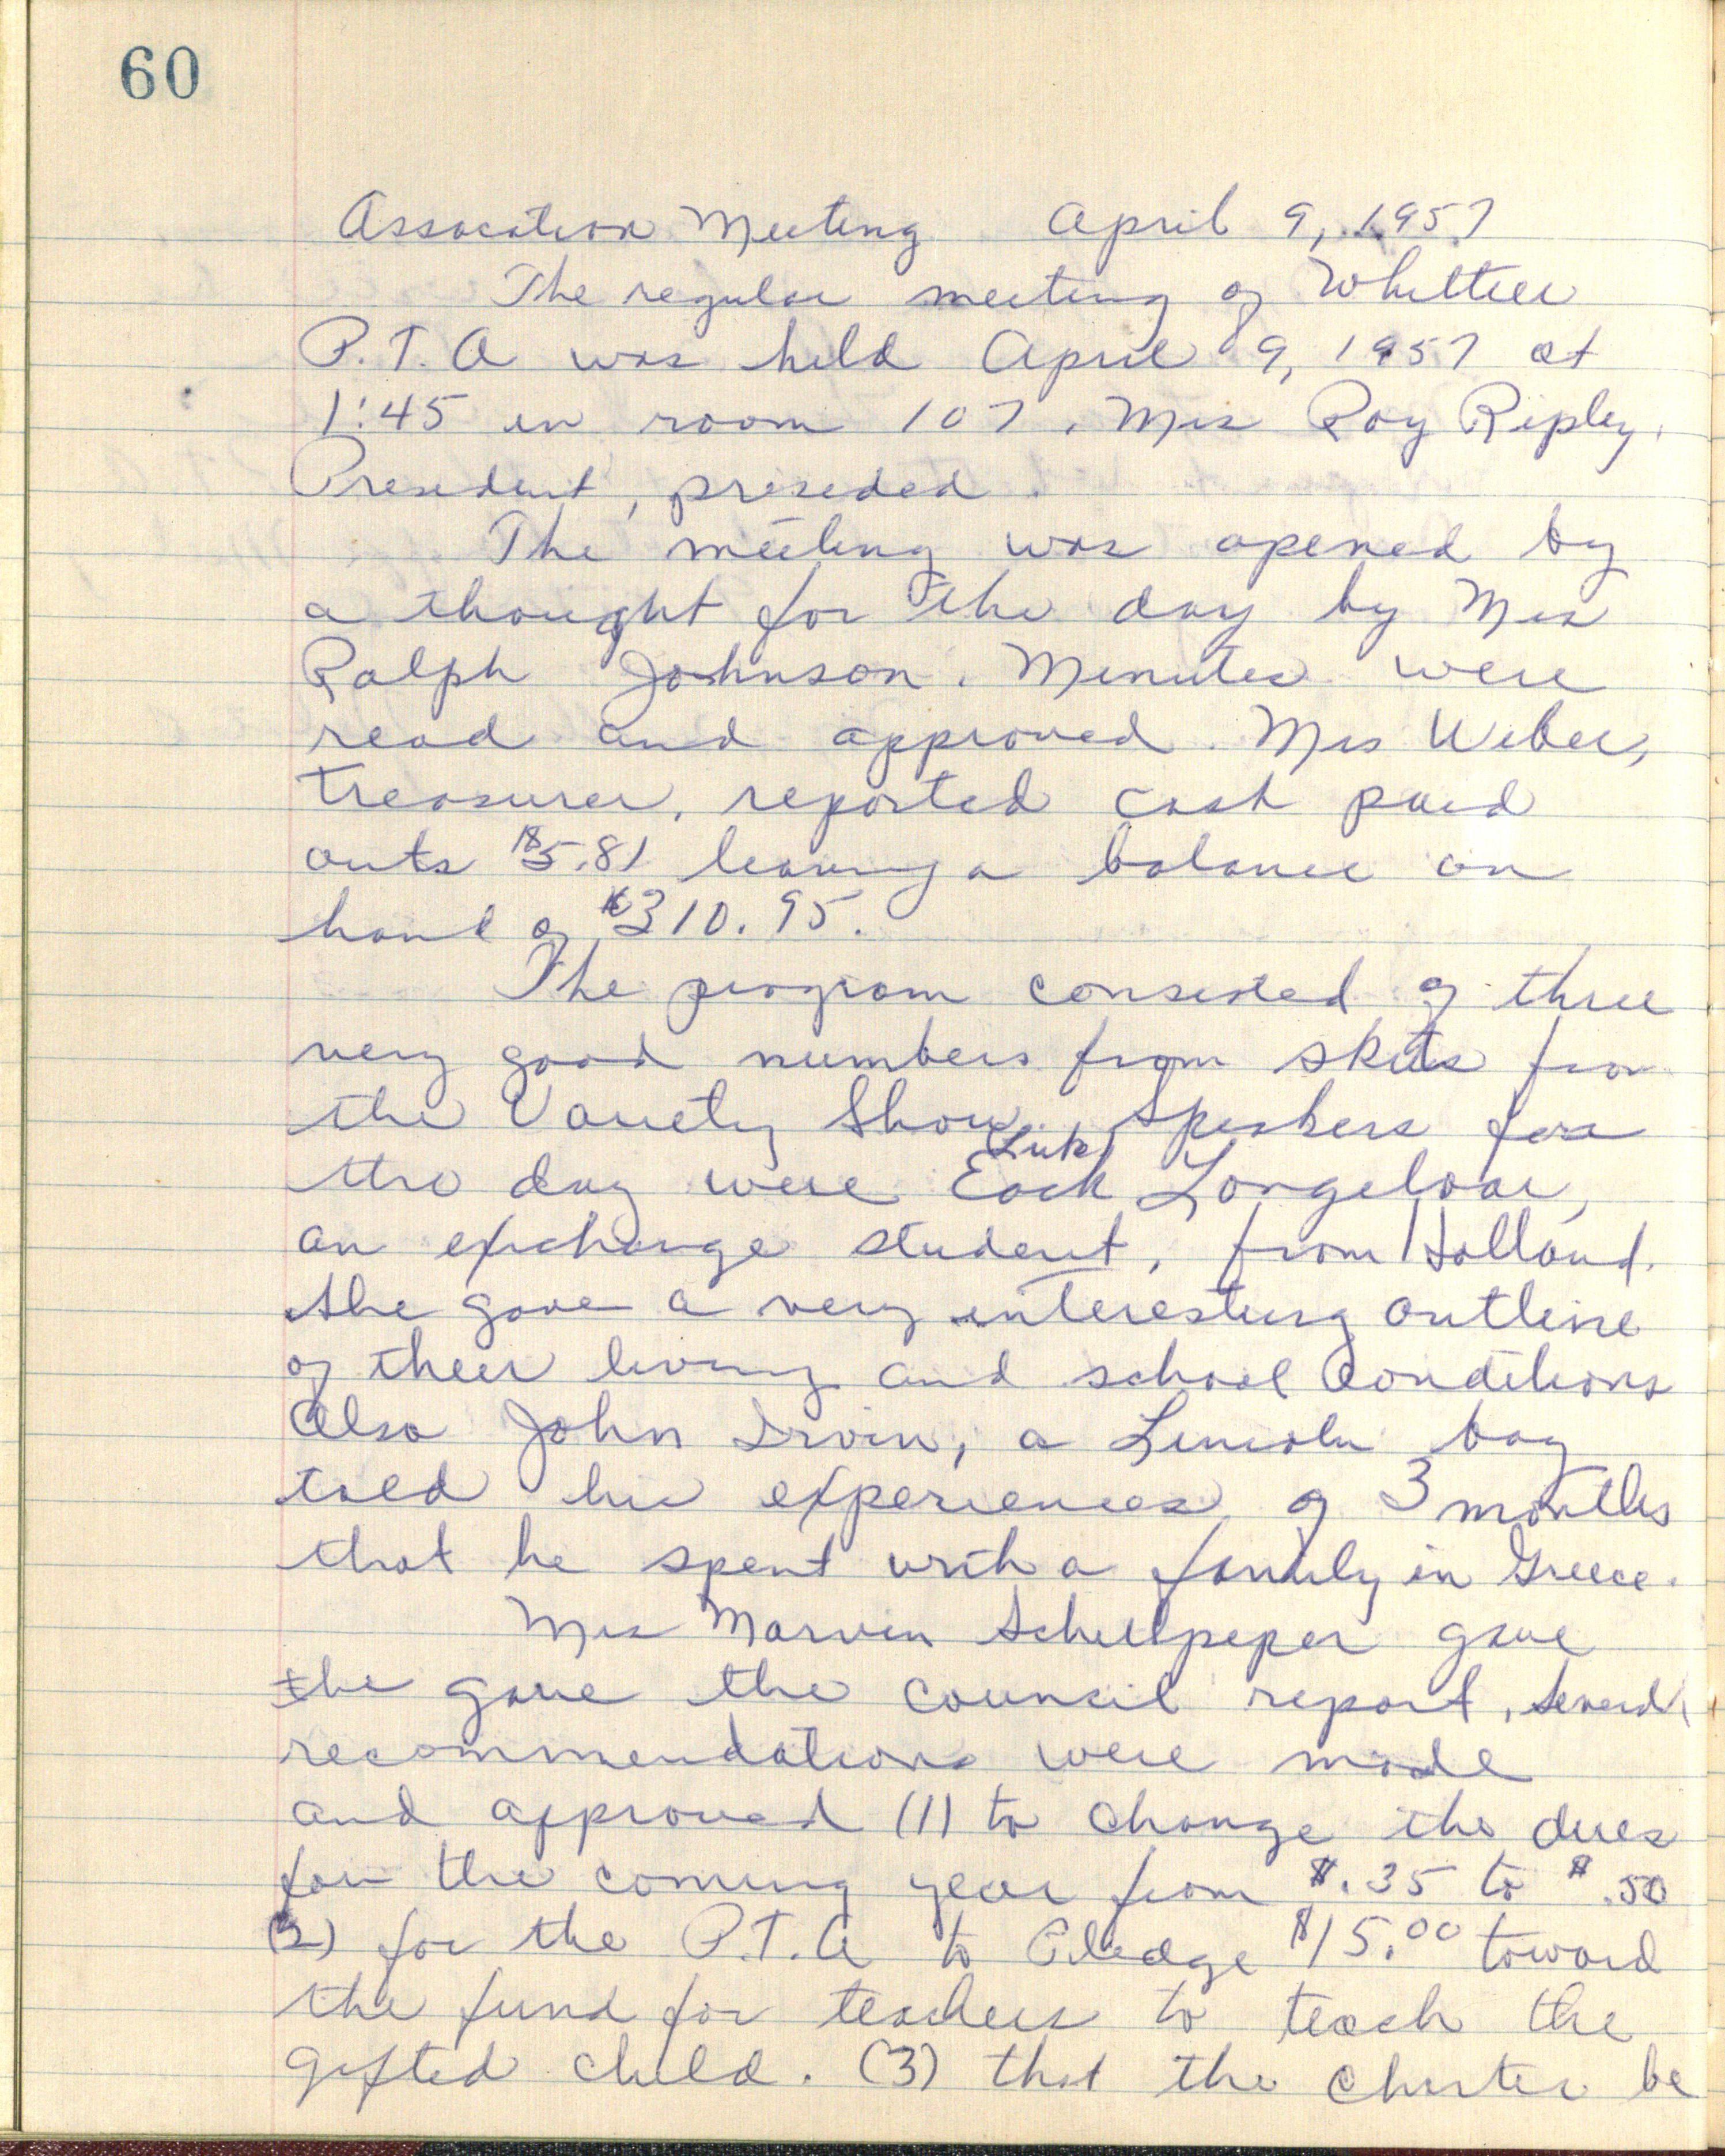 60
Assocation Meeting April 9, 1957
The regular meeting of Whittier
P.T.A was held April 9, 1957 at
1:45 in room 107. Mrs Roy Ripley,
President, presided.
The meeting was opened by
a thought for the day by Mrs
Ralph Johnson. Minutes were
read and approved. Mrs Weber,
treasurer, reported cash paid
outs $5.81 leaving a balance on
hand of $310.95.
The program consisted of three
very good numbers from skits from
the Variety Show. Speakers for
Luk
the day were Eack Longeloar,
an exchange student, from Holland.
She gave a very interesting outline
of their living and school conditions
Also John Irvin, a Lincoln boy
told his experiences of 3 months
that he spent with a family in Greece.
Mrs Marvin Schellpeper gave
the gave the council report, Several
recommendations were made
and approved (1) to change the dues
for the coming year from $.35 to $.50
(2) for the P.T.A to Pledge $15.00 toward
the fund for teachers to teach the
gifted child. (3) that the charter be